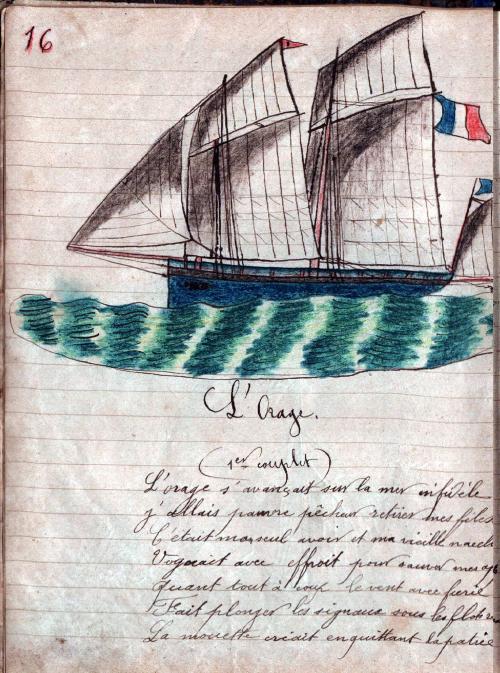 16
L'Orage.
(1er couplet)
L'orage s'avançait sur la mer infidèle
j'allais pauvre pêcheur retirer mes filets
C'était mon seul avoir et ma vieille nacelle
Voguait avec effroit pour sauver mes
Quant tout à coup le vent avec furie
Fait plonger les signaux sous les flots
La mouette criait en quittant la patrie